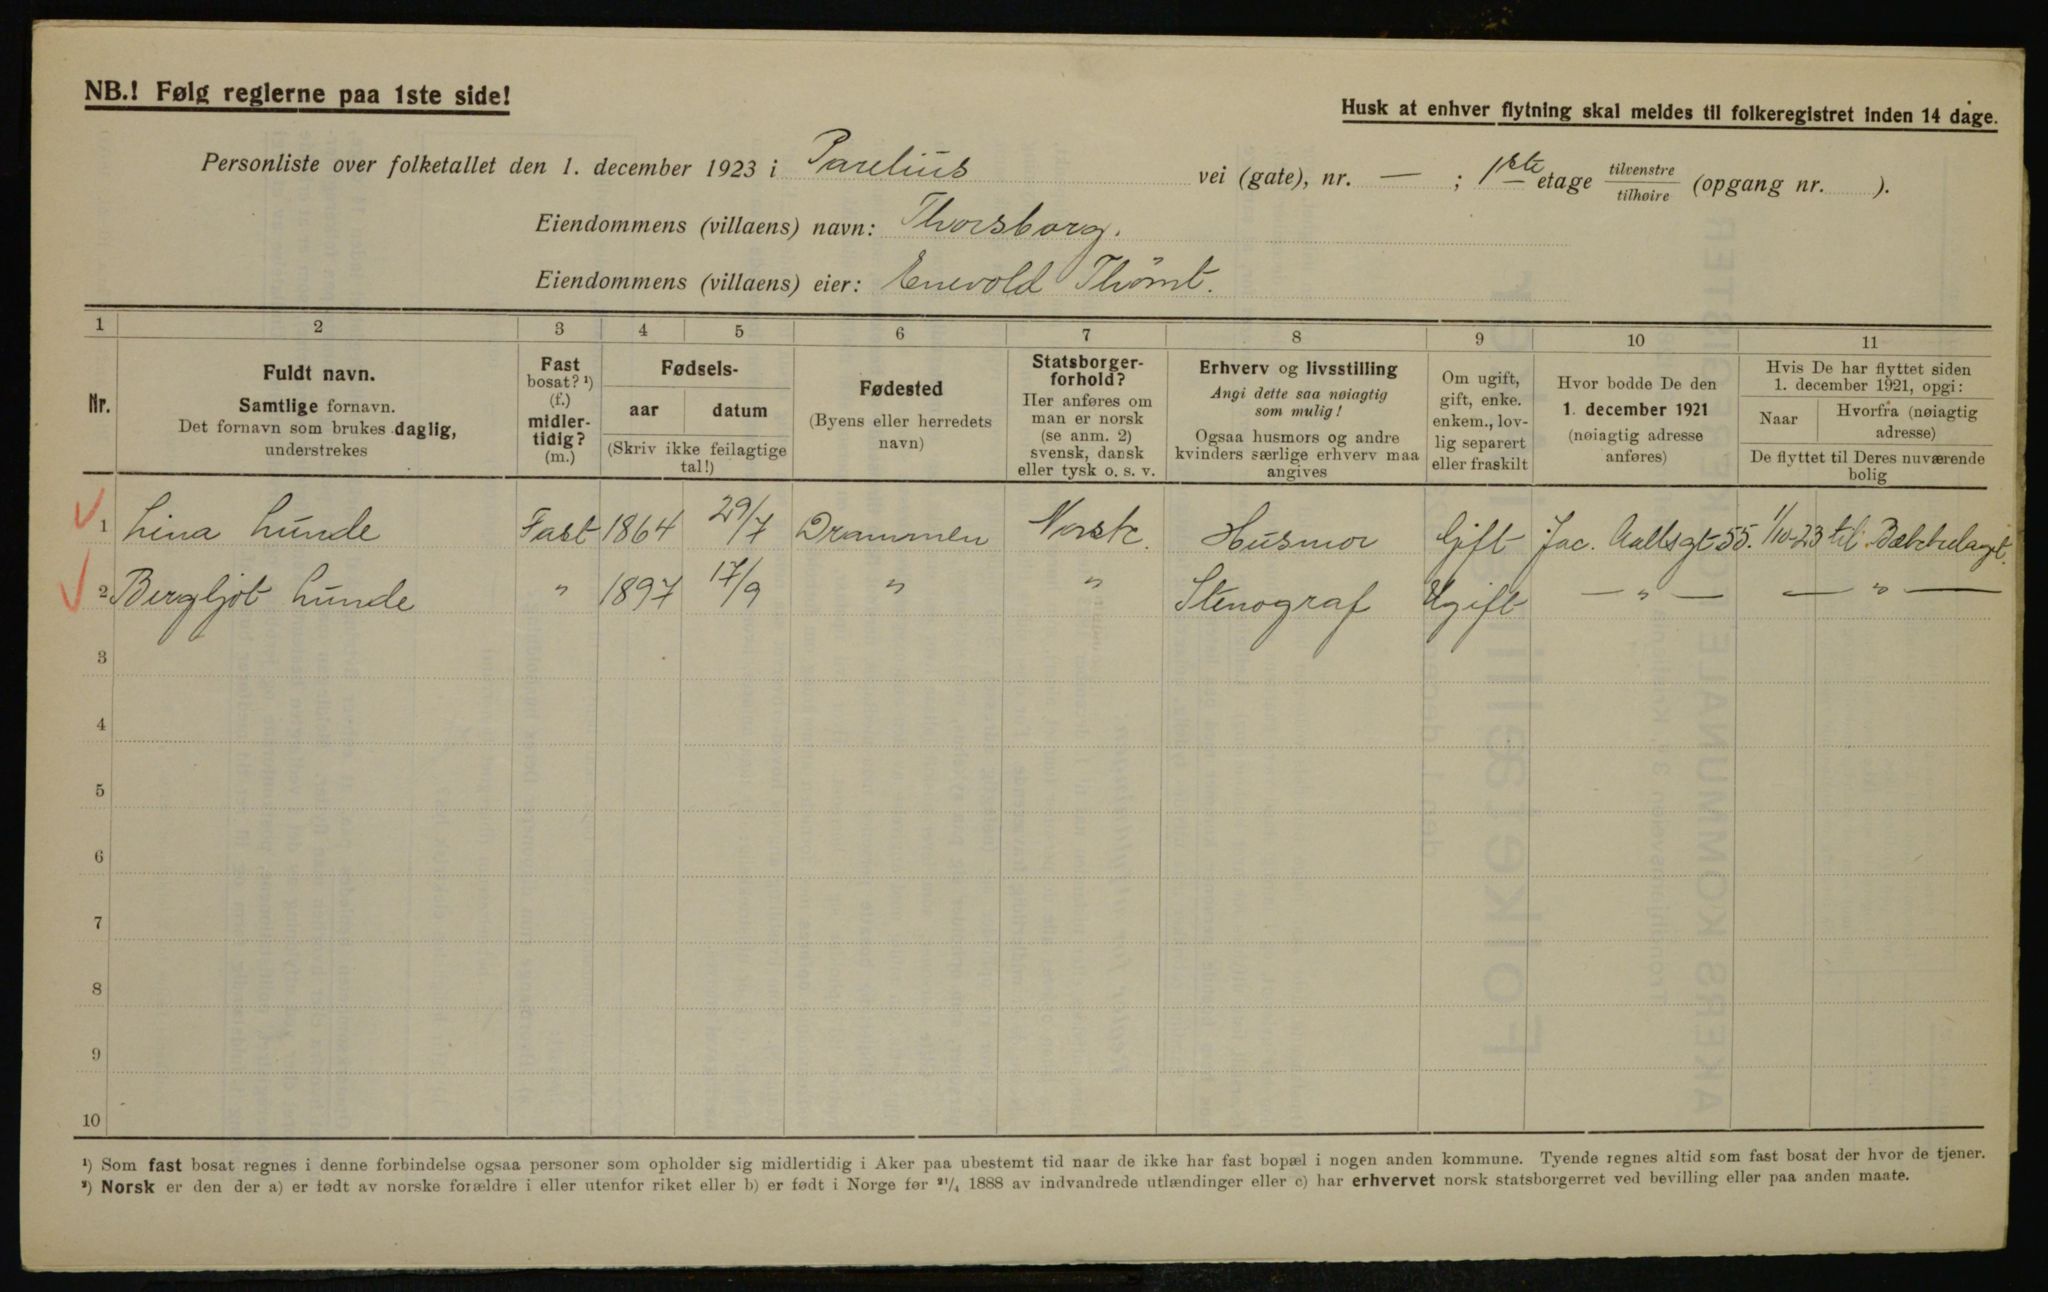 NB.! Følg reglerne paa 1ste side!
Husk at enhver flytning skal meldes til folkeregistret inden 14 dage.
Personliste over folketallet den 1. december 1923 i Parelius vei (gate), nr. — ; 1ste etage tilvenstre / tilhøire (opgang nr. ).
Eiendommens (villaens) navn: Thorsborg.
Eiendommens (villaens) eier: Enevold Thømt.
1 2 3 4 5 6 7 8 9 10 11
Nr.
Fuldt navn.
Samtlige fornavn.
Det fornavn som brukes daglig,
understrekes
Fast
bosat? ¹)
(f.)
midler-
tidig?
(m.)
Fødsels-
aar datum
(Skriv ikke feilagtige
tal!)
Fødested
(Byens eller herredets
navn)
Statsborger-
forhold?
Her anføres om
man er norsk
(se anm. 2)
svensk, dansk
eller tysk o. s. v.
Erhverv og livsstilling
Angi dette saa nøiagtig
som mulig!
Ogsaa husmors og andre
kvinders særlige erhverv maa
angives
Om ugift,
gift, enke.
enkem., lov-
lig separert
eller fraskilt
Hvor bodde De den
1. december 1921
(nøiagtig adresse
anføres)
Hvis De har flyttet siden
1. december 1921, opgi:
Naar Hvorfra (nøiagtig
adresse)
De flyttet til Deres nuværende
bolig
1 Lina Lunde Fast 1864 29/7 Drammen Norsk. Husmor Gift Jac. Aallsgt 55. 1/10-23 til Bækkelaget.
2 Bergljot Lunde " 1897 17/9 " " Stenograf Ugift — " — — " —
3
4
5
6
7
8
9
10
¹) Som fast bosat regnes i denne forbindelse ogsaa personer som opholder sig midlertidig i Aker paa ubestemt tid naar de ikke har fast bopæl i nogen anden kommune. Tyende regnes altid som fast bosat der hvor de tjener.
²) Norsk er den der a) er født av norske forældre i eller utenfor riket eller b) er født i Norge før ²¹/₄ 1888 av indvandrede utlændinger eller c) har erhvervet norsk statsborgerret ved bevilling eller paa anden maate.